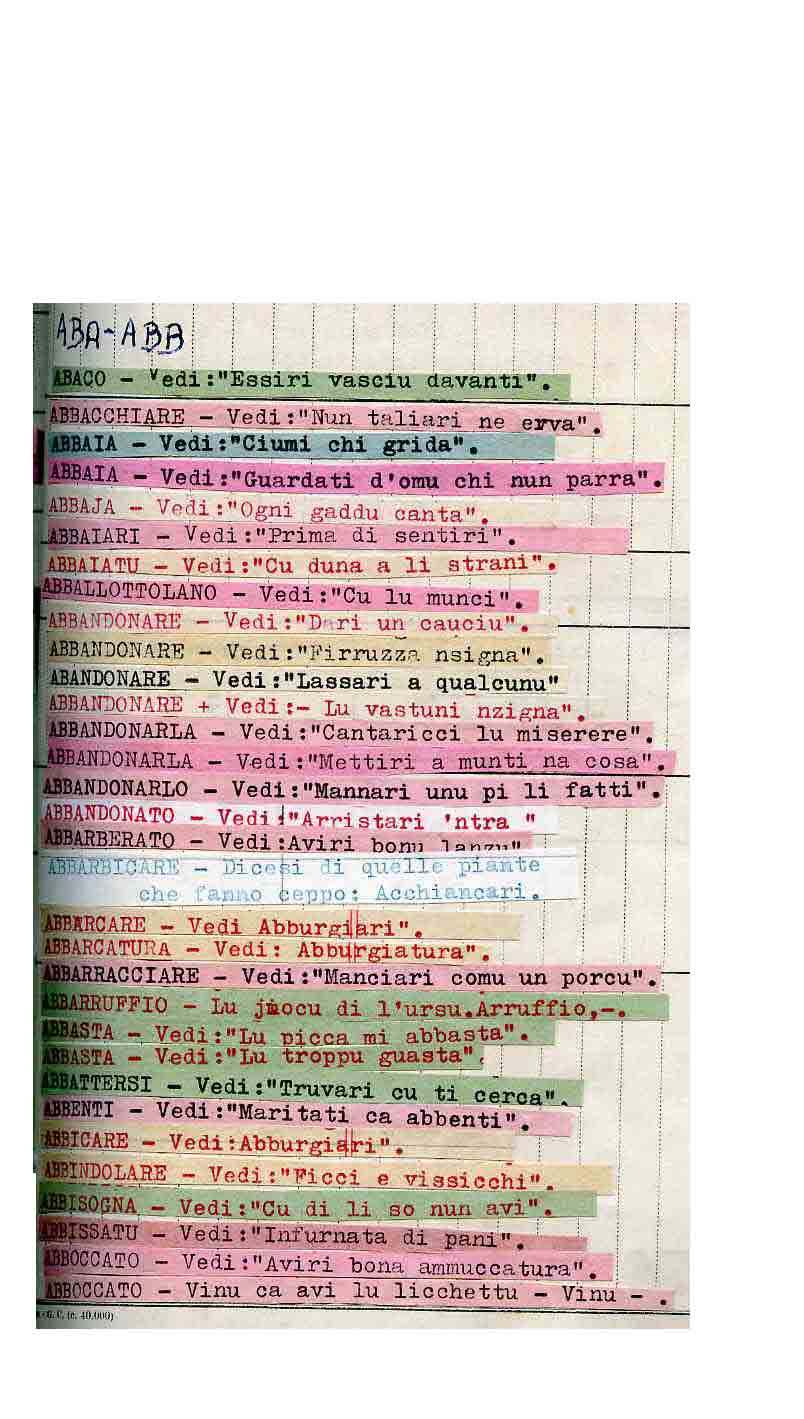 ABA-ABB
ABACO - Vedi:"Essiri vasciu davanti".
ABBACCHIARE - Vedi:"Nun taliari ne erva".
ABBAIA - Vedi:"Ciumi chi grida".
ABBAIA - Vedi:"Guardati d'omu chi nun parra".
ABBAJA - Vedi:"Ogni gaddu canta".
ABBAIARI - Vedi:"Prima di sentiri".
ABBAIATU - Vedi:"Cu duna a li strani".
ABBALLOTTOLANO - Vedi:"Cu lu munci".
ABBANDONARE - Vedi:"Dari un cauciu".
ABBANDONARE - Vedi:"Firruzza nsigna".
ABANDONARE - Vedi:"Lassari a qualcunu"
ABBANDONARE + Vedi:- Lu vastuni nzigna".
ABBANDONARLA - Vedi:"Cantaricci lu miserere".
ABBANDONARLA - Vedi:"Mettiri a munti na cosa".
ABBANDONARLO - Vedi:"Mannari unu pi li fatti".
ABBANDONATO - Vedi:"Arristari 'ntra "
ABBARBERATO - Vedi:Aviri bonu lanzu"
ABBARBICARE - Dicesi di quelle piante
che fanno ceppo: Acchiancari.
ABBARCARE - Vedi Abburgiari".
ABBARCATURA - Vedi: Abburgiatura".
ABBARRACCIARE - Vedi:"Manciari comu un porcu".
ABBARRUFFIO - Lu jocu di l'ursu.Arruffio,-.
ABBASTA - Vedi:"Lu picca mi abbasta".
ABBASTA - Vedi:"Lu troppu guasta".
ABBATTERSI - Vedi:"Truvari cu ti cerca".
ABBENTI - Vedi:"Maritati ca abbenti".
ABBICARE - Vedi:Abburgiari".
ABBINDOLARE - Vedi:"Ficci e vissicchi".
ABBISOGNA - Vedi:"Cu di li so nun avi".
ABBISSATU - Vedi:"Infurnata di pani".
ABBOCCATO - Vedi:"Aviri bona ammuccatura".
ABBOCCATO - Vinu ca avi lu licchettu - Vinu - .
G. C. (c. 40.000)